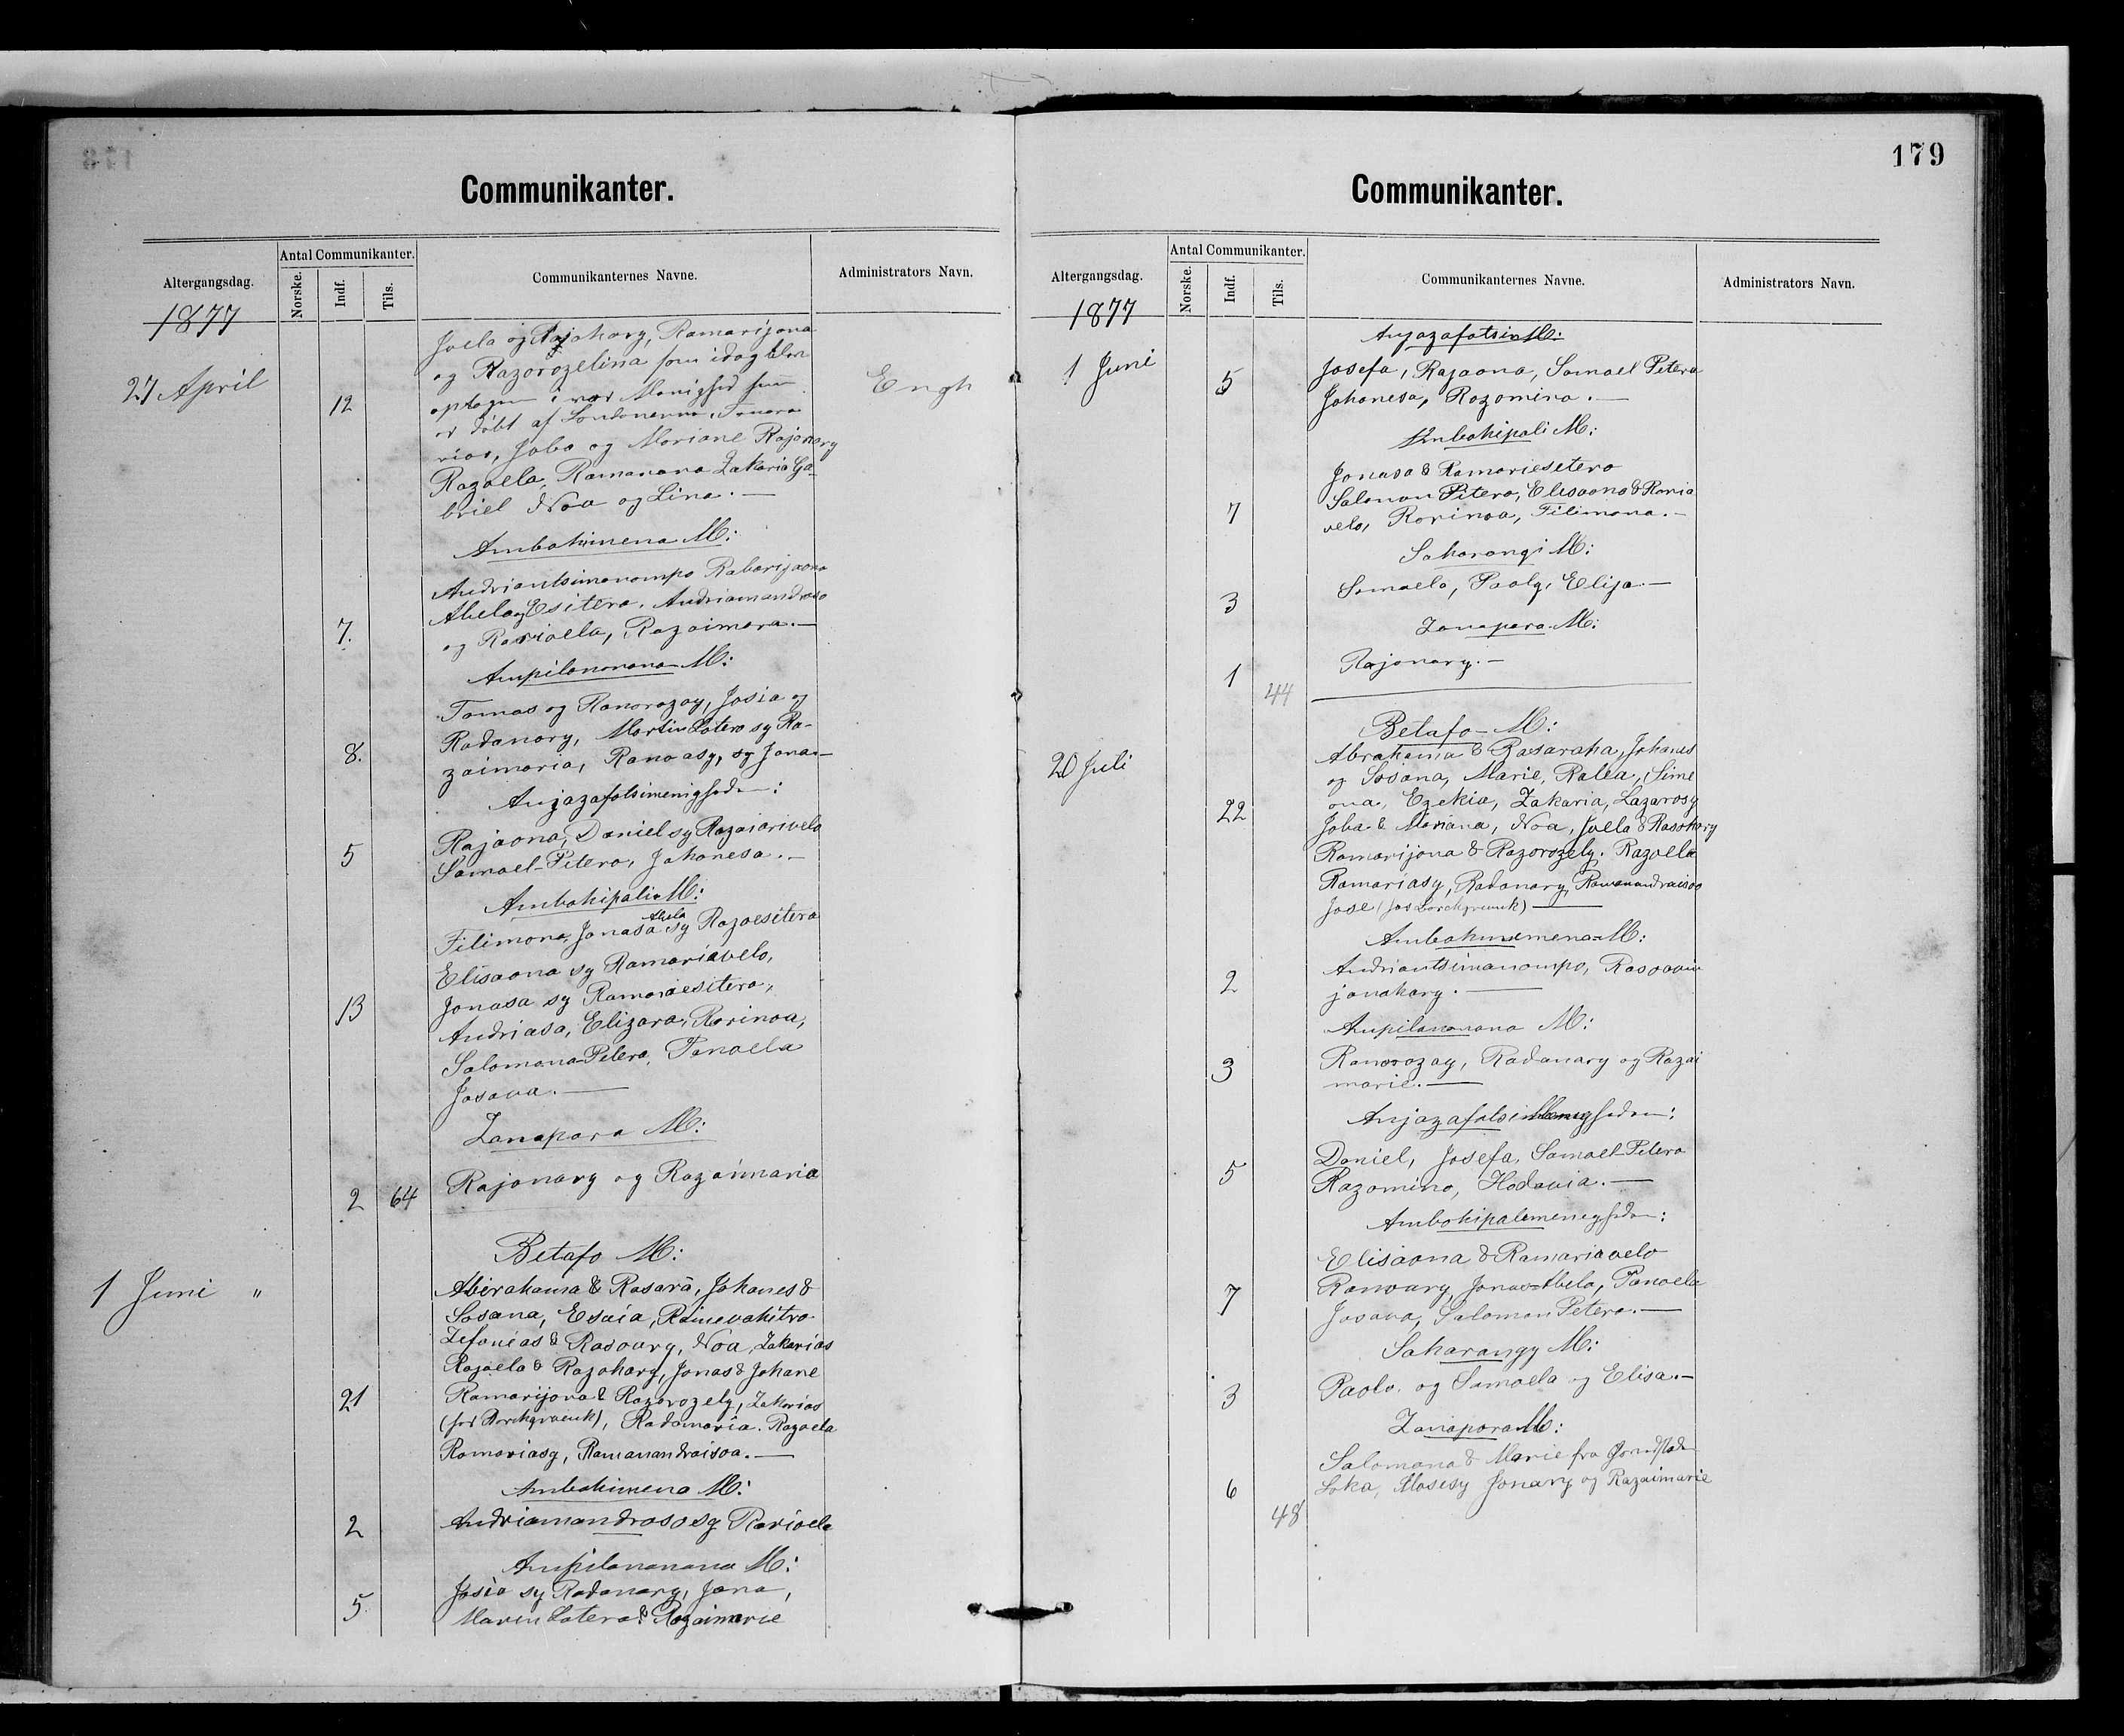 Communikanter.
Altergangsdag.
Antal Communikanter.
Norske.
Indf.
Tils.
Communikanternes Navne.
Administrators Navn.
1877
27 April
12
Engh
Joela og Razohary, Ramarijona
og Razorozelina som idag blev
optagen i vor Menighed som
er døbt af
rias, Joba og Mariane Rajonary
Razoela, Ramanana Zakaria Ga-
briel Noa og Lina. —
Ambohimena M:
Andriantsimanompo Rabarijaona
Abela og Esitera. Andriamandroso
7.
og Rarioela, Razaimara. —
Ampilanonana M:
Tomas og Ranorozay, Josia og
Radanary, Martin Lotera sy Ra-
8.
zaimaria, Ranoasy, sy Jona —
Anjazafotsimenigheden:
Rajaona, Daniel sy Razaiarivelo
5
Samoel-Petera, Johanesa. —
Ambohipolia M:
Abela
Filimona, Jonasa sy Razoesitera
Elisaona sy Ramariavelo,
13
Jonasa sy Ramariaesitera,
Andriasa, Elizara, Rarinoa,
Salomona-Petera, Fanoela
Josova. —
Zanapara M:
2 64
Rajonary og Razaimaria
Betafo M:
1 Juni "
Abirahama & Rasara, Johanes &
Sosana, Esaia, Rainevohitra
Zefanias & Rasoary, Noa, Zakarias
Razoela & Razohary, Jonas & Johane
21
Ramarijona & Razorozely, Zakarias
(hos Borchgrevink), Radamaria. Razoela
Ramariasy, Ramanandraisoa. —
Ambohimena M:
2
Andriamandroso sy Rarioela
Ampilanonana M:
Josia sy Radanary, Jona,
5.
Marin Lotera & Razaimarie
179
Communikanter.
Altergangsdag.
Antal Communikanter.
Norske.
Indf.
Tils.
Communikanternes Navne.
Administrators Navn.
1877
Anjazafotsi M:
1 Juni
5
Josefa, Rajaona, Samoel Petera
Johanesa, Razomina. —
Ambohipoli M:
Jonasa & Ramariesitera
7
Salomon Petera, Elisaona & Raria
velo, Rarinoa, Filimona. —
Saharangi M:
3
Samoela, Paoly, Elisa. —
Zanapara M:
1
Rajonary. —
44
Betafo - M:
20 Juli
Abrahama & Rasaraha, Johanes
og Sosana, Marie, Ralea, Sime
22
ona, Ezekia, Zakaria, Lazarosy
Joba & Mariana, Noa, Joella & Rasohary
Ramarijona & Razorozely. Razoela
Ramariasy, Radanary, Ramanandraisoa
Jose (hos Borchgrevink) —
Ambohimena M:
2
Andriantsimanompo, Rasoavin
janahary. —
Ampilanonana M:
3
Ranorozay, Radanary og Razai
marie. —
Anjazafotsi Menigheden:
5
Daniel, Josefa, Samoel-Petera
Razomino, Hodavia. —
Ambohipolemenigheden:
Elisaona & Ramariavelo
7
Ranoary, Jonas-Abela, Fanoela
Josava, Salomon Petera. —
Saharangy M:
3
Paolo, og Samoela og Elisa. —
Zanapara M:
Salomona & Marie fra
6
Loka, Mosesy Jonary og Razaimarie
48